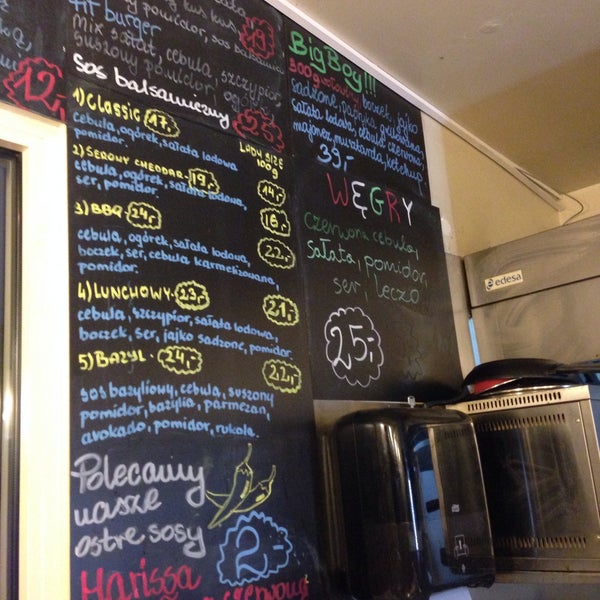 kus kus,
pomidor, sos
19
12,-
Fit burger
mix sałat, cebula, szczypior,
suszony pomidor, ogórek
sos balsamiczny
25,-
1) Classic 17,-
LADY SIZE
100g
cebula, ogórek, sałata lodowa
pomidor.
14,-
2) SEROWY CHEDDAR 19,-
cebula, ogórek, sałata lodowa,
ser, pomidor.
16,-
3) BBQ 24,-
22,-
cebula, ogórek, sałata lodowa,
boczek, ser, cebula karmelizowana,
pomidor.
4) LUNCHOWY 23,-
21,-
cebula, szczypior, sałata lodowa,
boczek, ser, jajko sadzone, pomidor.
5) BAZYL 24,-
22,-
sos bazyliowy, cebula, suszony
pomidor, bazylia, parmezan,
avokado, pomidor, rukola.
Polecamy
nasze
ostre sosy
2,-
Harissa
czerwony
Big Boy!!!
300g wołowiny, boczek, jajko
sadzone, papryka, 
sałata lodowa, cebula czerwona,
majonez, musztarda, ketchup
39,-
WĘGRY
czerwona cebula,
sałata, pomidor,
ser, leczo
25,-
edesa